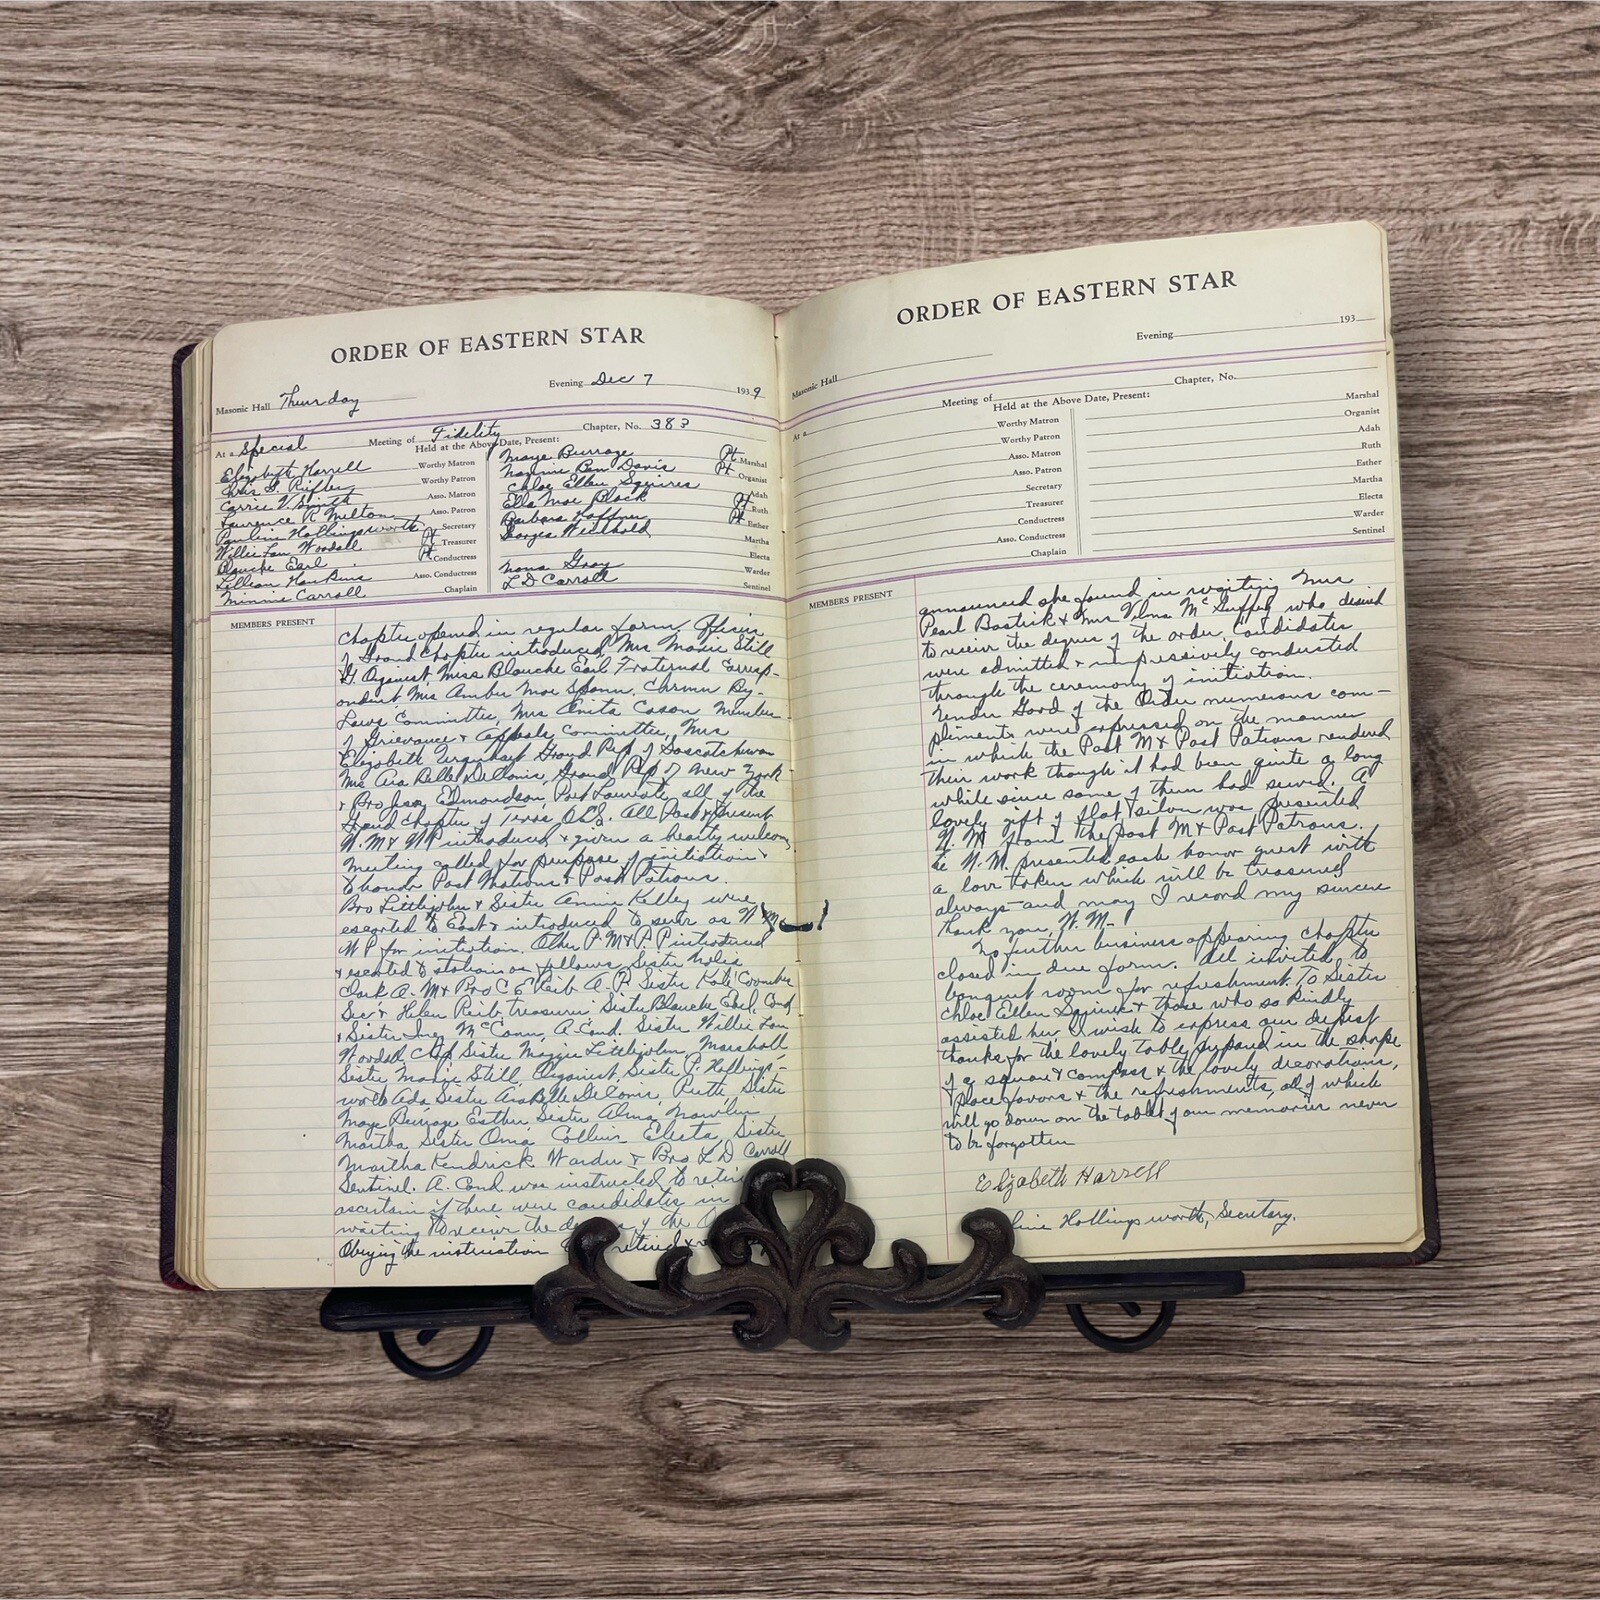 ORDER OF EASTERN STAR
Masonic Hall Thursday Evening Dec 7 1939
At a Special Meeting of Fidelity Chapter, No. 383
Held at the Above Date, Present:
Elizabeth Harrell Worthy Matron
Worthy Patron
Carrie V. Smith Asso. Matron
Laurence R Milton Asso. Patron
Pauline Hollingsworth Secretary
Willie Lou Woodall Pt Treasurer
Blauche Earl Pt Conductress
Lillian Hankins Asso. Conductress
Minnie Carroll Chaplain
Maye Burrage Pt Marshal
Nannie Ben Davis Pt Organist
Chloe Ellen Squires Adah
Ella Mae Black Pt Ruth
Barbara Haffner Pt Esther
Georgia Martha
Electa
Nona Gray Warder
L D Carroll Sentinel
MEMBERS PRESENT
Chapter opened in regular form. Officers
of Grand Chapter introduced, Mrs Marie Still
Organist, Miss Blauche Earl Fraternal Corresp-
ondent, Mrs Amber Mae Spann, Chrmn By-
Laws Committee, Mrs Anita Cason Member
of Grievance & Appeals Committee, Mrs
Elizabeth Urquhart Grand Rep of Sascatchewan
Mrs Ara Belle DeLonis, Grand Rep of New York
& Bro Edmondson, Poet Laureate, all of the
Grand Chapter of Texas O.E.S. All Past & present
W.M & W P introduced & given a hearty welcome
Meeting called for purpose of initiation &
to honor Past Matrons & Past Patrons.
Bro Littlejohn & Sister Annie Kelley were
escorted to East & introduced to serve as W M
W P for initiation. Other P.M & P.P introduced
& escorted to station as follows Sister
Clark A. M & Bro C E Reib A. P. Sister Kate
Sec & Helen Reib, treasurer Sister Blauche Earl, Cond
& Sister Inez McConn, A. Cond. Sister Willie Lou
Woodall, Sister Maggie Littlejohn Marshall
Sister Marie Still, Organist, Sister P. Hollings-
worth Ada, Sister AraBelle DeLonis, Ruth, Sister
Maye Burrage Esther, Sister Alma Nowlin
Martha Sister Oma Collins Electa, Sister
Martha Kendrick Warder & Bro L D Carroll
Sentinel. A. Cond was instructed to
ascertain if there were candidates in
waiting to receive the of the
Obeying the instruction retired &
ORDER OF EASTERN STAR
Masonic Hall Evening 193
At a Meeting of Chapter, No.
Held at the Above Date, Present:
Worthy Matron
Worthy Patron
Asso. Matron
Asso. Patron
Secretary
Treasurer
Conductress
Asso. Conductress
Chaplain
Marshal
Organist
Adah
Ruth
Esther
Martha
Electa
Warder
Sentinel
MEMBERS PRESENT
announced she found in waiting Mrs
Pearl Bostick & Mrs Velma McGuffey who desired
to receive the degrees of the order, Candidates
were admitted & impressively conducted
through the ceremony of initiation.
Under Good of the Order numerous com-
pliments were expressed on the manner
in which the Past M & Past Patrons rendered
their work though it had been quite a long
while since some of them had served. A
lovely gift of flat silver was presented
W. M. from the past M & Past Patrons.
W. M. presented each honor guest with
a love token which will be treasured
always and may I record my sincere
thank you, W. M.
No further business appearing chapter
closed in due form. All invited to
banquet room for refreshment. To Sister
Chloe Ellen Squires & those who so kindly
assisted her, I wish to express our deepest
thanks for the lovely table prepared in the shape
of a square & compass & the lovely decorations,
place favors & the refreshments, all of which
will go down on the tablet of our memories never
to be forgotten
Elizabeth Harrell
Hollingsworth, Secretary.